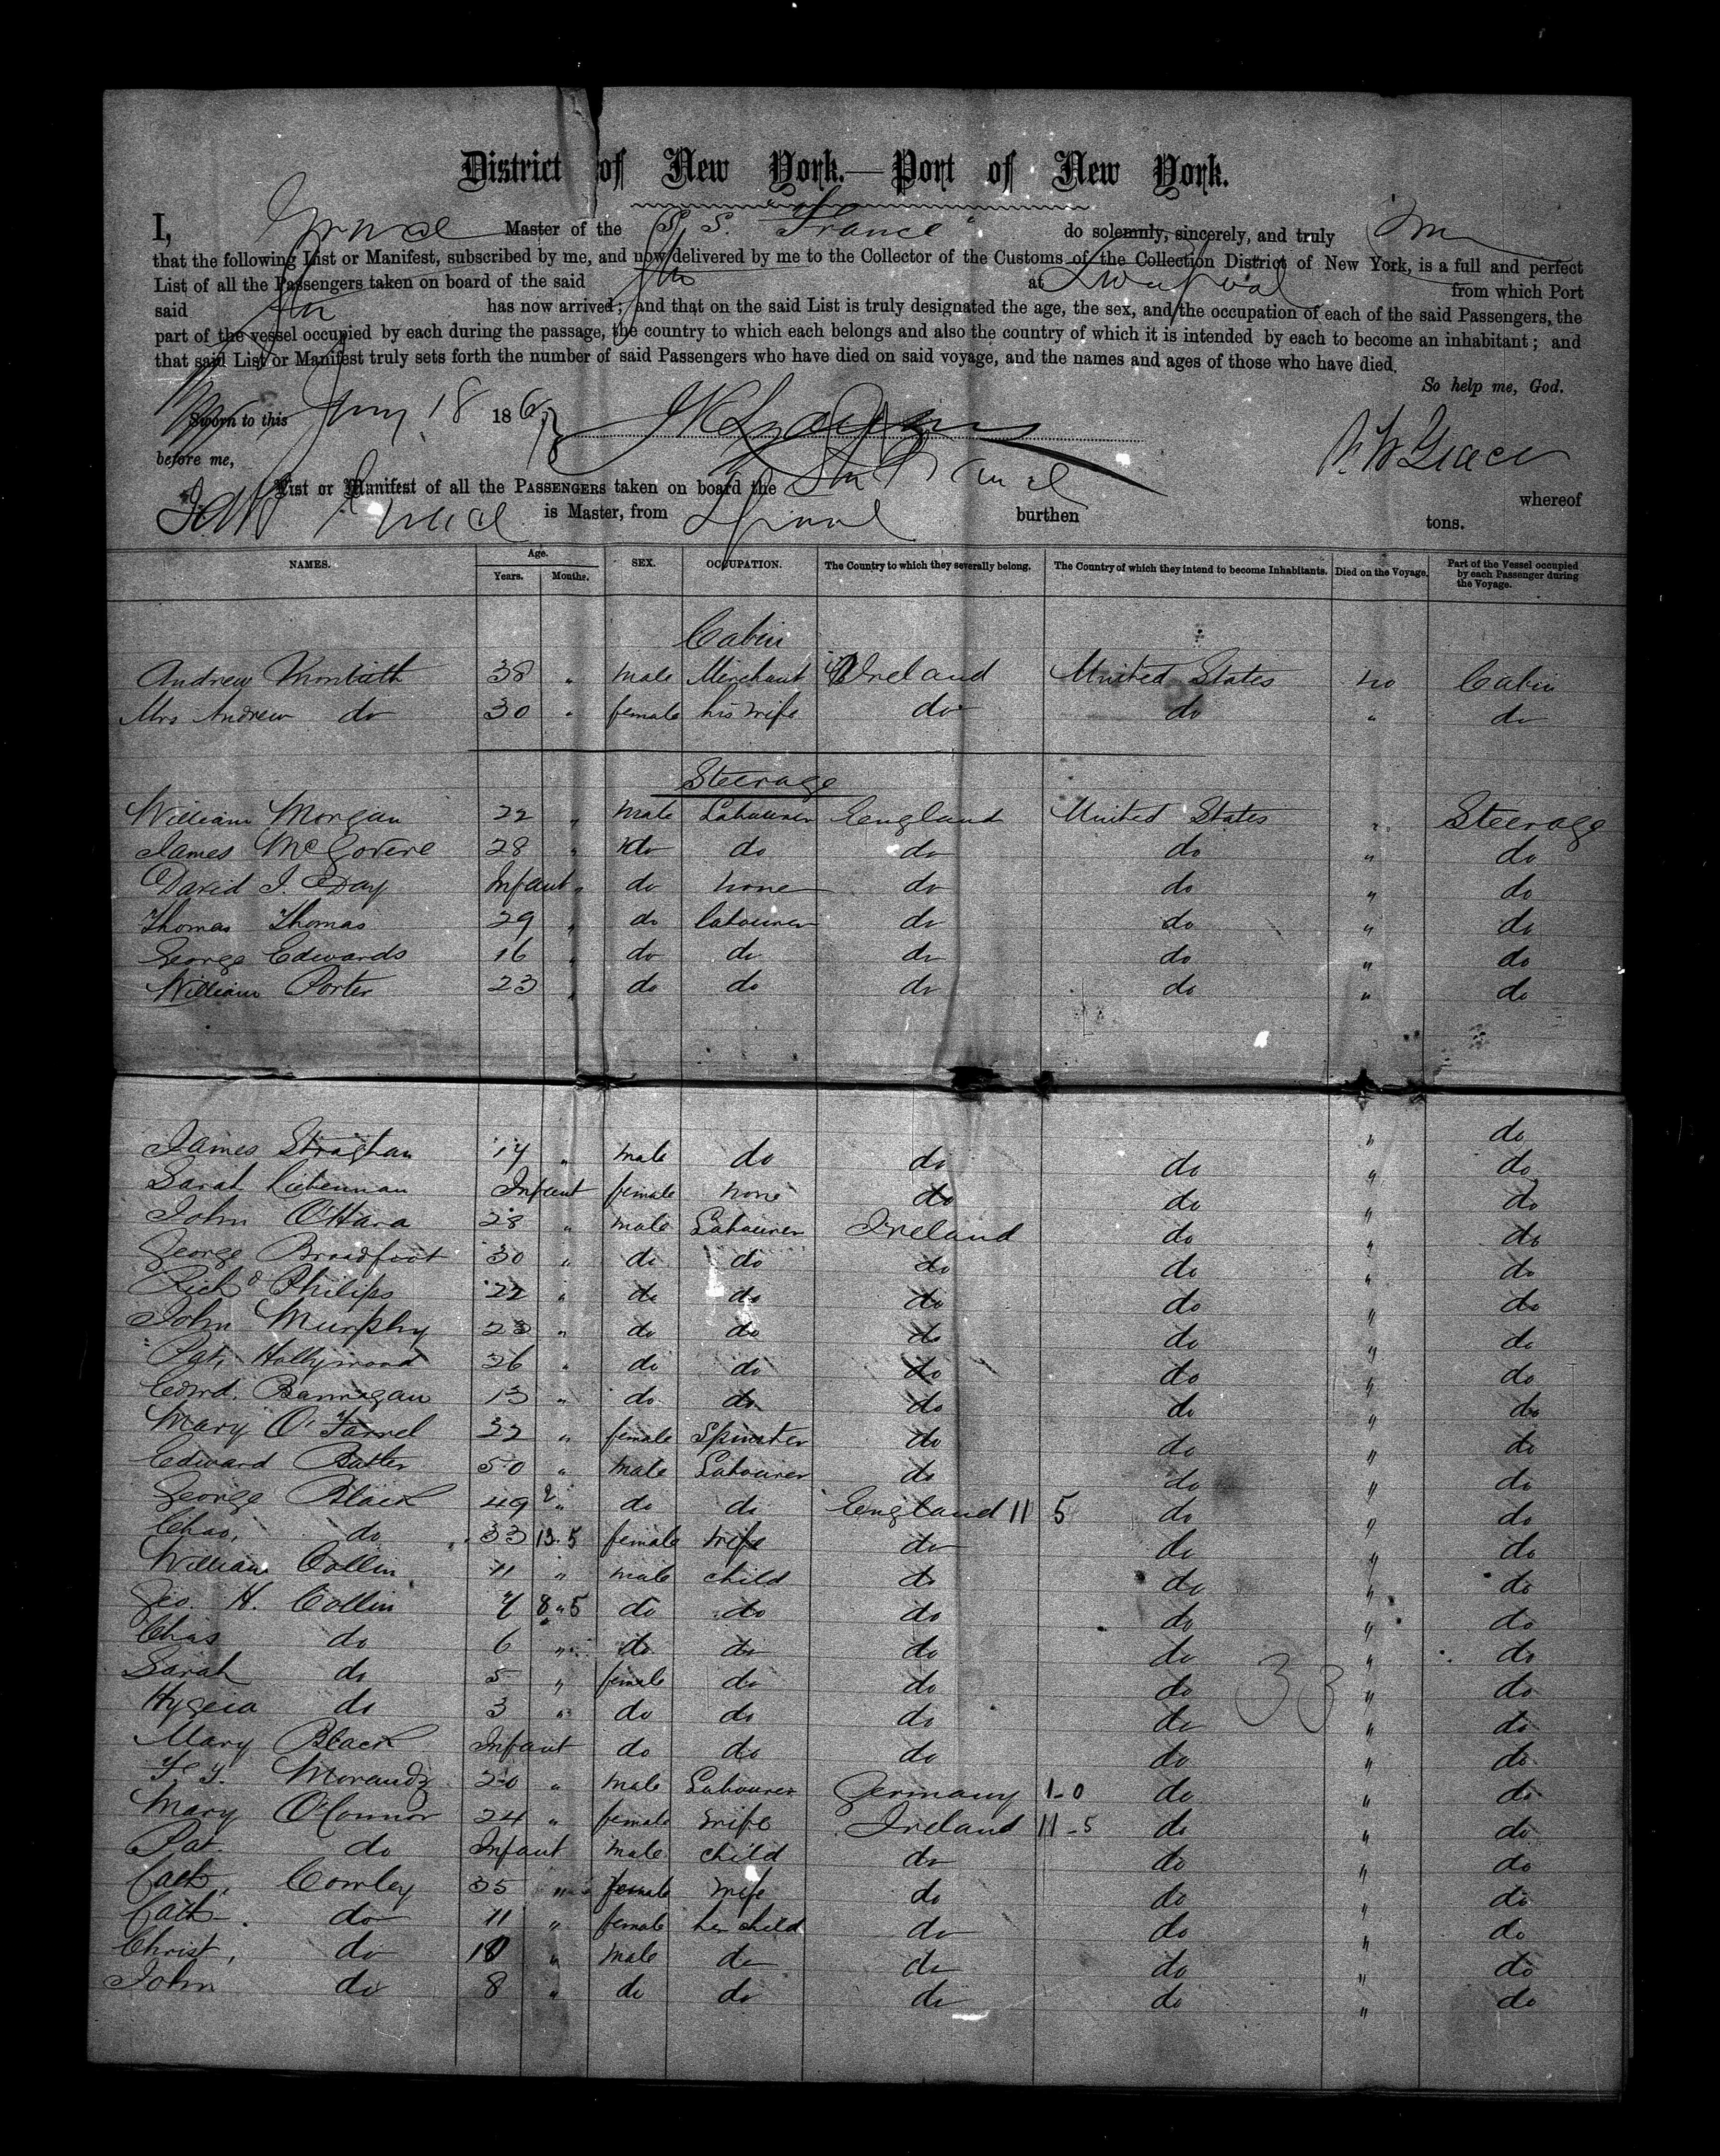 District of New York.—Port of New York.
I, Grace Master of the S. S. "France" do solemnly, sincerely, and truly
that the following List or Manifest, subscribed by me, and now delivered by me to the Collector of the Customs of the Collection District of New York, is a full and perfect
List of all the Passengers taken on board of the said at Liverpool from which Port
said has now arrived; and that on the said List is truly designated the age, the sex, and the occupation of each of the said Passengers, the
part of the vessel occupied by each during the passage, the country to which each belongs and also the country of which it is intended by each to become an inhabitant; and
that said List or Manifest truly sets forth the number of said Passengers who have died on said voyage, and the names and ages of those who have died.
So help me, God.
Sworn to this 18 186
before me,
List or Manifest of all the PASSENGERS taken on board the France whereof
Grace is Master, from burthen tons.
NAMES. Age. Years. Months. SEX. OCCUPATION. The Country to which they severally belong. The Country of which they intend to become Inhabitants. Died on the Voyage. Part of the Vessel occupied by each Passenger during the Voyage.
Cabin
Andrew 38 " male Merchant Ireland United States no Cabin
Mrs Andrew do 30 " female his wife do do " do
Steerage
William Morgan 22 " male Labourer England United States " Steerage
James McGovern 28 " do do do do " do
David J. Day Infant " do none do do " do
Thomas Thomas 29 " do labourer do do " do
George Edwards 16 " do do do do " do
William Porter 23 " do do do do " do
" do
James Straghan 14 " male do do do " do
Sarah Infant female none do do " do
John O'Hara 28 " male Labourer Ireland do " do
George Broadfoot 30 " do do do do " do
Richd Philips 22 " do do do do " do
John Murphy 23 " do do do do " do
Pat. Hollywood 26 " do do do do " do
Edwd. Bannagan 13 " do do do do " do
Mary O'Farrel 22 " female Spinster do do " do
Edward Butler 50 " male Labourer do do " do
George Black 49 " do do England 11 5 do " do
Chas. do 33 13.5 female wife do do " do
William Collin 11 " male child do do " do
Geo. H. Collin 7 8 " 5 do do do do " do
Chas do 6 " do do do do " do
Sarah do 5 " female do do do " do
Hygeia do 3 " do do do do " do
Mary Black Infant do do do do " do
20 " male Labourer Germany 1-0 do " do
Mary O'Connor 24 " female wife Ireland 11-5 do " do
Pat. do Infant male child do do " do
Cath. Cowley 35 " female wife do do " do
Cath. do 11 " female her child do do " do
Christ. do 10 " male do do do " do
John do 8 " do do do do " do
33